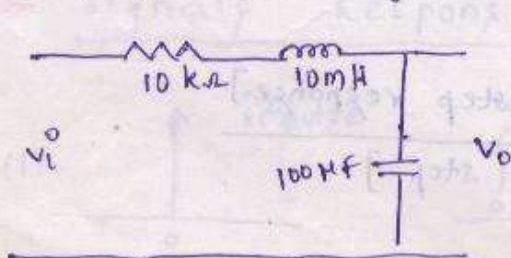 10 kΩ
10mH
Vi
100μF
Vo